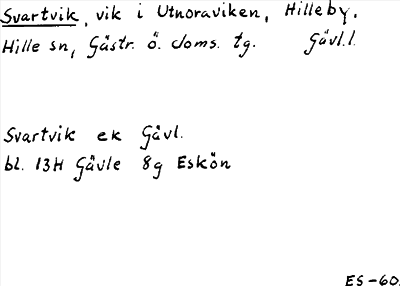 Svartvik, vik i Utnoraviken, Hilleby,
Hille sn, Gästr. ö. doms. tg. Gävl.l.
Svartvik ek Gävl.
bl. 13H Gävle 8g Eskön
ES-60.